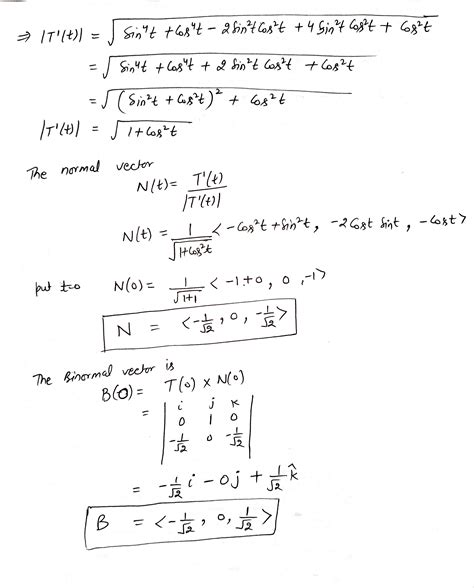 ⇒ |T'(t)| = √(Sin⁴t + Cos⁴t - 2Sin²t Cos²t + 4 Sin²t Cos²t + Cos²t)
= √(Sin⁴t + Cos⁴t + 2 Sin²t Cos²t + Cos²t)
= √((Sin²t + Cos²t)² + Cos²t)
|T'(t)| = √(1+Cos²t)
The normal vector
N(t) = T'(t)/|T'(t)|
N(t) = 1/√(1+Cos²t) < -Cos²t + Sin²t, -2 Cost Sint, -Cost>
put t=0 N(0) = 1/√(1+1) < -1+0, 0, -1>
N = < -1/√2, 0, -1/√2 >
The Binormal vector is
B(0) = T(0) × N(0)
= | i j k
0 1 0
-1/√2 0 -1/√2 |
= -1/√2 i - 0j + 1/√2 k̂
B = < -1/√2, 0, 1/√2 >